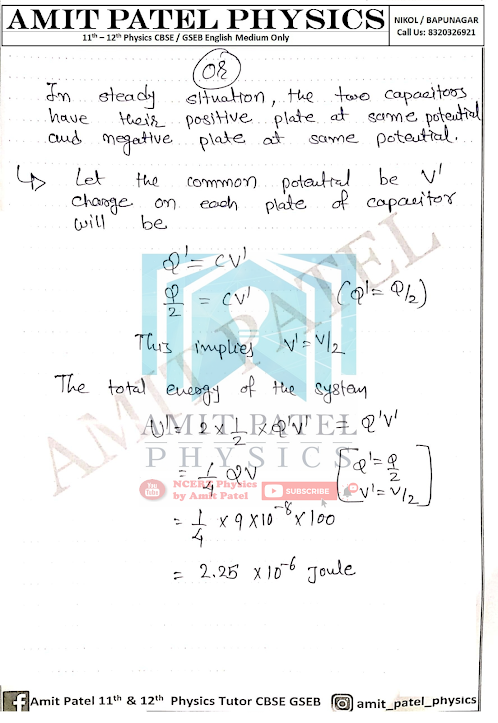 AMIT PATEL PHYSICS
11th – 12th Physics CBSE / GSEB English Medium Only
NIKOL / BAPUNAGAR
Call Us: 8320326921
OR
In steady situation, the two capacitors
have their positive plate at same potential
and negative plate at same potential.
↳ Let the common potential be V'
charge on each plate of capacitor
will be
Q' = CV'
Q/2 = CV' (Q' = Q/2)
This implies V' = V/2
The total energy of the system
U' = 2 × 1/2 × Q'V' = Q'V'
= 1/4 QV [Q' = Q/2
V' = V/2]
= 1/4 × 9 × 10⁻⁸ × 100
= 2.25 × 10⁻⁶ Joule
AMIT PATEL
AMIT PATEL
PHYSICS
You Tube
NCERT Physics
by Amit Patel
SUBSCRIBE
f Amit Patel 11th & 12th Physics Tutor CBSE GSEB amit_patel_physics